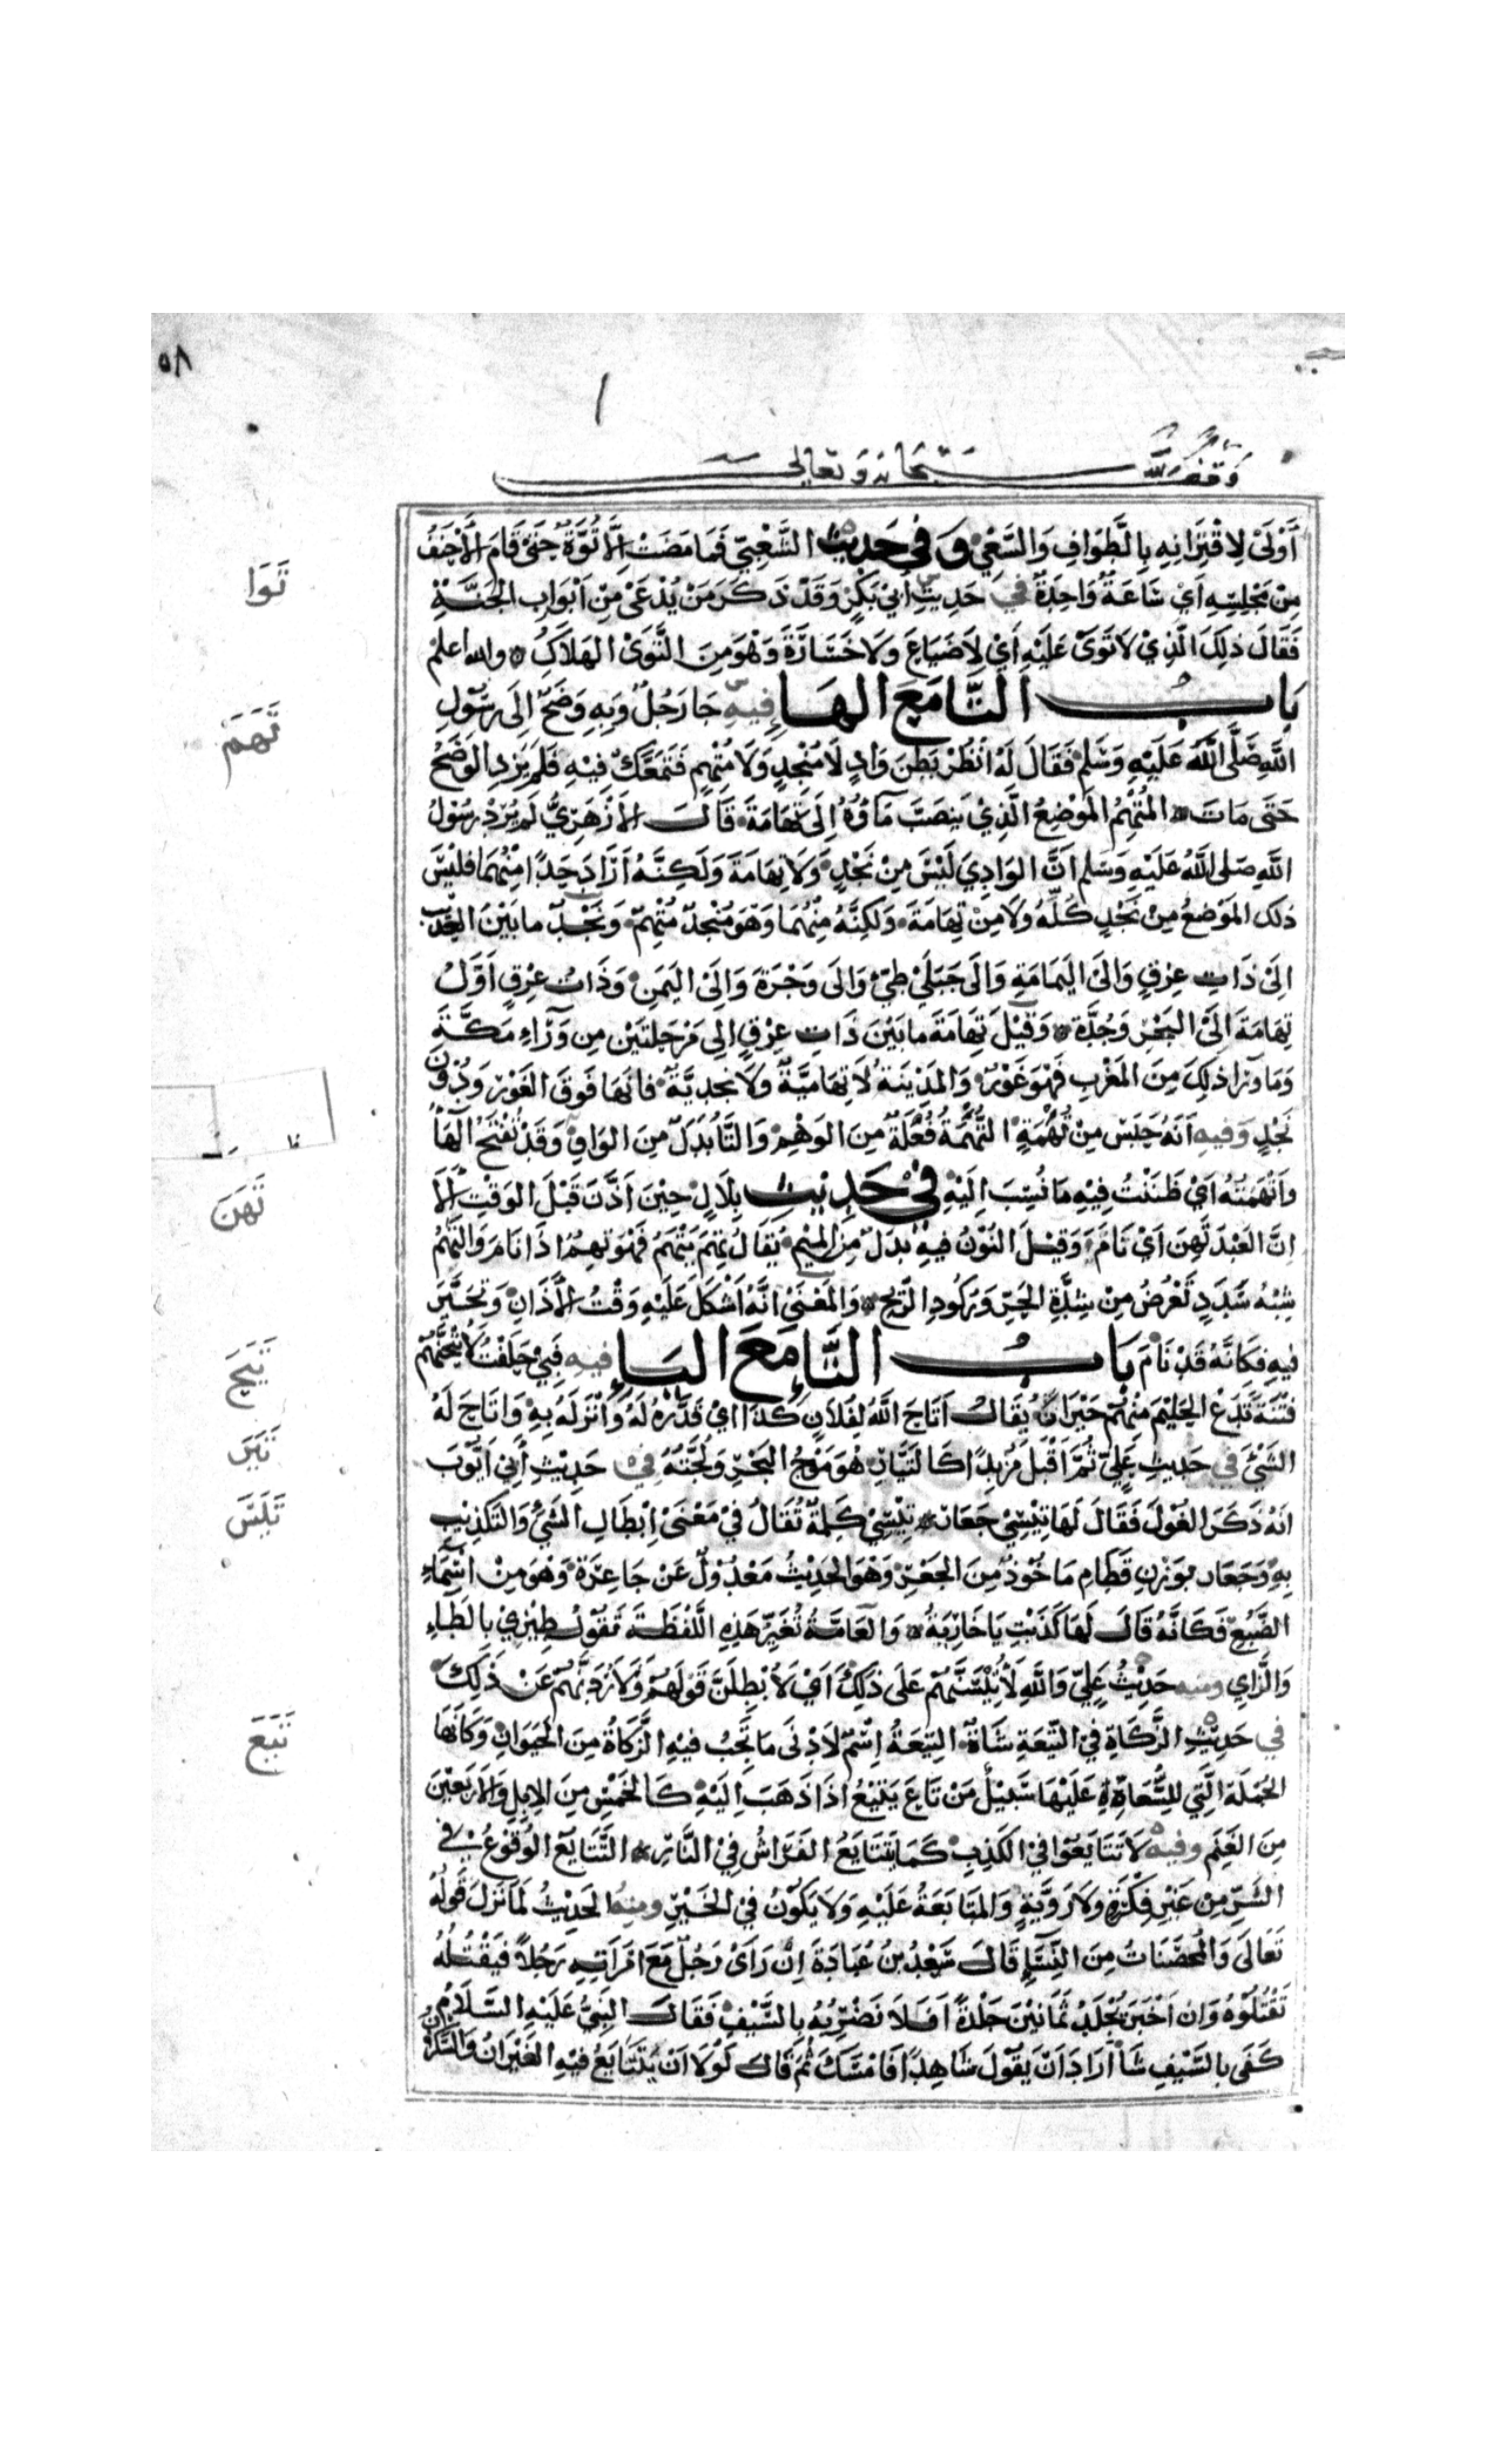 ٥٨
وقف لله سبحانه وتعالى
أَوْلَى لِاقْتِرَانِهِ بِالطَّوَافِ وَالسَّعْيِ وَفِي حَدِيثِ الشَّعْبِيِّ فَمَا مَضَتْ إِلَّا تُوَّةٌ حَتَّى قَامَ الأَحْنَفُ
توا
مِنْ مَجْلِسِهِ أَيْ سَاعَةٌ وَاحِدَةٌ فِي حَدِيثِ أَبِي بَكْرٍ وَقَدْ ذَكَرَ مَنْ يُدْعَى مِنْ أَبْوَابِ الْجَنَّةِ
فَقَالَ ذَلِكَ الَّذِي لَا تَوَى عَلَيْهِ أَيْ لَا ضَيَاعَ وَلَا خَسَارَةَ وَهُوَ مِنَ التَّوَى الهَلَاكِ والله اعلم
بَابُ التَّا مَعَ الهَاءِ فِيهِ جَا رَجُلٌ وَبِهِ وَضَحٌ إِلَى رَسُولِ
تهم
اللهِ صَلَّى اللهُ عَلَيْهِ وَسَلَّمَ فَقَالَ لَهُ انْظُرْ بَطْنَ وَادٍ لَا مُنْجِدٍ وَلَا مُتْهِمٍ فَتَمَعَّكْ فِيْهِ فَلَمْ يَزِدِ الوَضَحُ
حَتَّى مَاتَ المُتْهِمُ المَوْضِعُ الَّذِيْ يَنصَبُّ مَاؤُهُ إِلَى تِهَامَةَ قَالَ الأَزْهَرِيُّ لَمْ يُرِدْ رَسُوْلُ
اللهِ صَلى اللهُ عَلَيْهِ وَسَلم أَنَّ الوَادِيَ لَيْسَ مِنْ نَجْدٍ وَلَا تِهَامَةَ وَلَكِنَّهُ أَرَادَ حَدًّا مِنْهُمَا فَلَيْسَ
ذلك المَوْضِعُ مِنْ نَجْدٍ كُلُّهُ وَلَا مِنْ تِهَامَةَ وَلَكِنَّهُ مِنْهُمَا وَهُوَ مُنْجِدٌ مُتْهِمٌ وَنَجْدٌ مَا بَيْنَ العُذَيْبِ
إِلَى ذَاتِ عِرْقٍ وَإِلَى اليَمَامَةِ وَإِلَى جَبَلَيْ طَيِّ وَالَى وَجْرَةَ وَإِلَى اليَمَنِ وَذَاتُ عِرْقٍ أَوَّلُ
تِهَامَةَ إِلَى البَحْرِ وَجُدَّةَ وَقِيْلَ تِهَامَةَ مَا بَيْنَ ذَاتِ عِرْقٍ إِلَى مَرْحَلَتَيْنِ مِن وَرَاءِ مَكَّةَ
وَمَا وَرَا ذَلِكَ مِنَ المَغْرِبِ فَهُوَ غَوْرٌ وَالمَدِيْنَةُ لَا تِهَامِيَّةٌ وَلَا نَجْدِيَّةٌ فَانَهَا فَوقَ الغَوْرِ وَدُوْنَ
نَجْدٍ وَفِيهِ أَنَّهُ حَبَسَ مِنْ تُهْمَةٍ التُّهْمَةُ فُعْلَةٌ مِنَ الوَهْمِ وَالتَّا بَدَلٌ مِنَ الوَاوِ وَقَدْ تُفْتَحُ الهَا
واتْهَمْتُهُ أَيْ ظَنَنْتُ فِيْهِ مَا نُسِبَ إِلَيْهِ فِيْ حَدِيْثِ بِلَالٍ حِيْنَ أَذَّنَ قَبْلَ الوَقْتِ أَلَا
تهن
إِنَّ العَبْدَ تَهِنَ أَيْ نَامَ وَقِيْلَ النُّوْنُ فِيهِ بَدَلٌ مِنَ المِيْمِ يُقَالُ تَهِمَ يَتْهَمُ فَهُوَ تَهِمٌ إِذَا نَامَ وَالتَّهَمُ
شِبْهُ سَدَدٍ تَعْرُضُ مِنْ شِدَّةِ الحَرِّ وَرُكُودِ الرِّيْحِ وَالمَعْنَى أَنَّهُ أَشْكَلَ عَلَيْهِ وَقْتُ الأَذَانِ وَتَحَيَّرَ
فِيهِ فَكَانَّهُ قَدْ نَامَ بَابُ التَّاءِ مَعَ اليَاءِ فِيهِ فَبِيْ حَلَفْتُ لَأُتِيْحَنَّهُمْ
تيح
فِتْنَةً تَدَعُ الحَلِيْمَ مِنْهُمْ حَيْرَانَ يُقَالُ أَتَاحَ اللهُ لِفُلَانٍ كَذَا أَيْ قَدَّرَهُ لَهُ وَأَنْزَلَهُ بِهِ وَاتَاحَ لَهُ
الشَّيْءُ فِي حَدِيثِ عَلِيٍّ ثُمَّ أَقْبَلَ مُزْبِدًا كَالتَّيَّارِ هُوَ مَوْجُ البَحْرِ وَلُجَّتُهُ فِي حَدِيْثِ أَبِي أَيُّوبَ
تير
انَهُ ذَكَرَ الغُوْلَ فَقَالَ لَهَا تِيْسِيْ جَعَارِ تِيْسِيْ كَلِمَةٌ تُقَالُ فِيْ مَعْنَى إِبْطَالِ الشَّيْءِ وَالتَّكْذِيْبِ
تيس
بِهِ وَجَعَارِ بِوَزْنِ قَطَامِ مَاخُوْذٌ مِنَ الجَعْرِ وَهْوَ الحَدِيْثُ مَعْدُوْلٌ عَنْ جَاعِرَةَ وَهُوَ مِنْ أَسْمَاءِ
الضَّبُعِ فَكَأَنَّهُ قَالَ لَهَا كَذَبْتِ يَا خَارِيَةُ وَالعَامَّةُ تُغَيِّرُ هَذِهِ اللَّفْظَةَ تَقُوْلُ طِيْزِيْ بِالطَاءِ
وَالزَّايِ ومنه حَدِيْثُ عَلِيٍّ وَاللهِ لَأُتِيْسَنَّهُمْ عَلَى ذَلِكَ أَيْ لَأُبْطِلَنَّ قَوْلَهُمْ وَلَأَرُدَّنَّهُمْ عَنْ ذَلِكَ
في حَدِيْثِ الزَّكَاةِ فِي التِّيْعَةِ شَاةٌ التِّيْعَةُ إِسْمٌ لِأَدْنَى مَا تَجِبُ فِيْهِ الزَّكَاةُ مِنَ الحَيَوَانِ وَكَأَنَّهَا
تيع
الجُمْلَةُ الَّتِي لِلسُّعَاةِ عَلَيْهَا سَبِيْلٌ مَنْ تَاعَ يَتِيْعُ إِذَا ذَهَبَ إِلَيْهِ كَالخَمْسِ مِنَ الإِبِلِ وَالأَرْبَعِيْنَ
مِنَ الغَنَمِ وفيه لَا تَتَايَعُوا فِي الكَذِبِ كَمَا يَتَتَايَعُ الفَرَاشُ فِي النَّارِ التَّتَايُعُ الوُقُوْعُ في
الشَّرِّ مِنْ غَيْرِ فِكْرَةٍ وَلَا رَوِيَّةٍ وَالمتَابَعَةُ عَلَيْهِ وَلَا يَكُوْنُ فِي الخَيْرِ ومنه الحَدِيْثُ لَمَّا نَزَلَ قَوْلُهُ
تَعَالَى وَالمُحْصَنَاتُ مِنَ النِّسَاءِ قَالَ سَعْدُ بنُ عُبَادَةَ إِنْ رَأَى رَجُلٌ مَعَ امْرَأَتِهِ رَجُلًا فَيَقْتُلُهُ
تَقْتُلُوْهُ وَإِن أَخْبَرَ يُجْلَدُ ثَمَانِيْنَ جَلْدَةً أَفَلَا نَضْرِبُهُ بِالسَّيْفِ فَقَالَ النَّبِيُّ عَلَيْهِ السَّلَامُ
كَفَى بِالسَّيْفِ شَا أَرَادَ أَنْ يَقُوْلَ شَاهِدًا فَامْسَكَ ثُمَّ قَالَ لَوْلَا أَنْ يَتَتَايَعُ فِيْهِ الغَيْرَانُ وَالسَّكْرَانُ